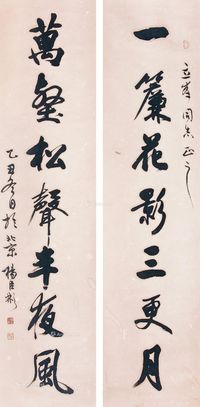 一簾花影三更月
同志正之
萬壑松聲半夜風
乙丑冬日於北京